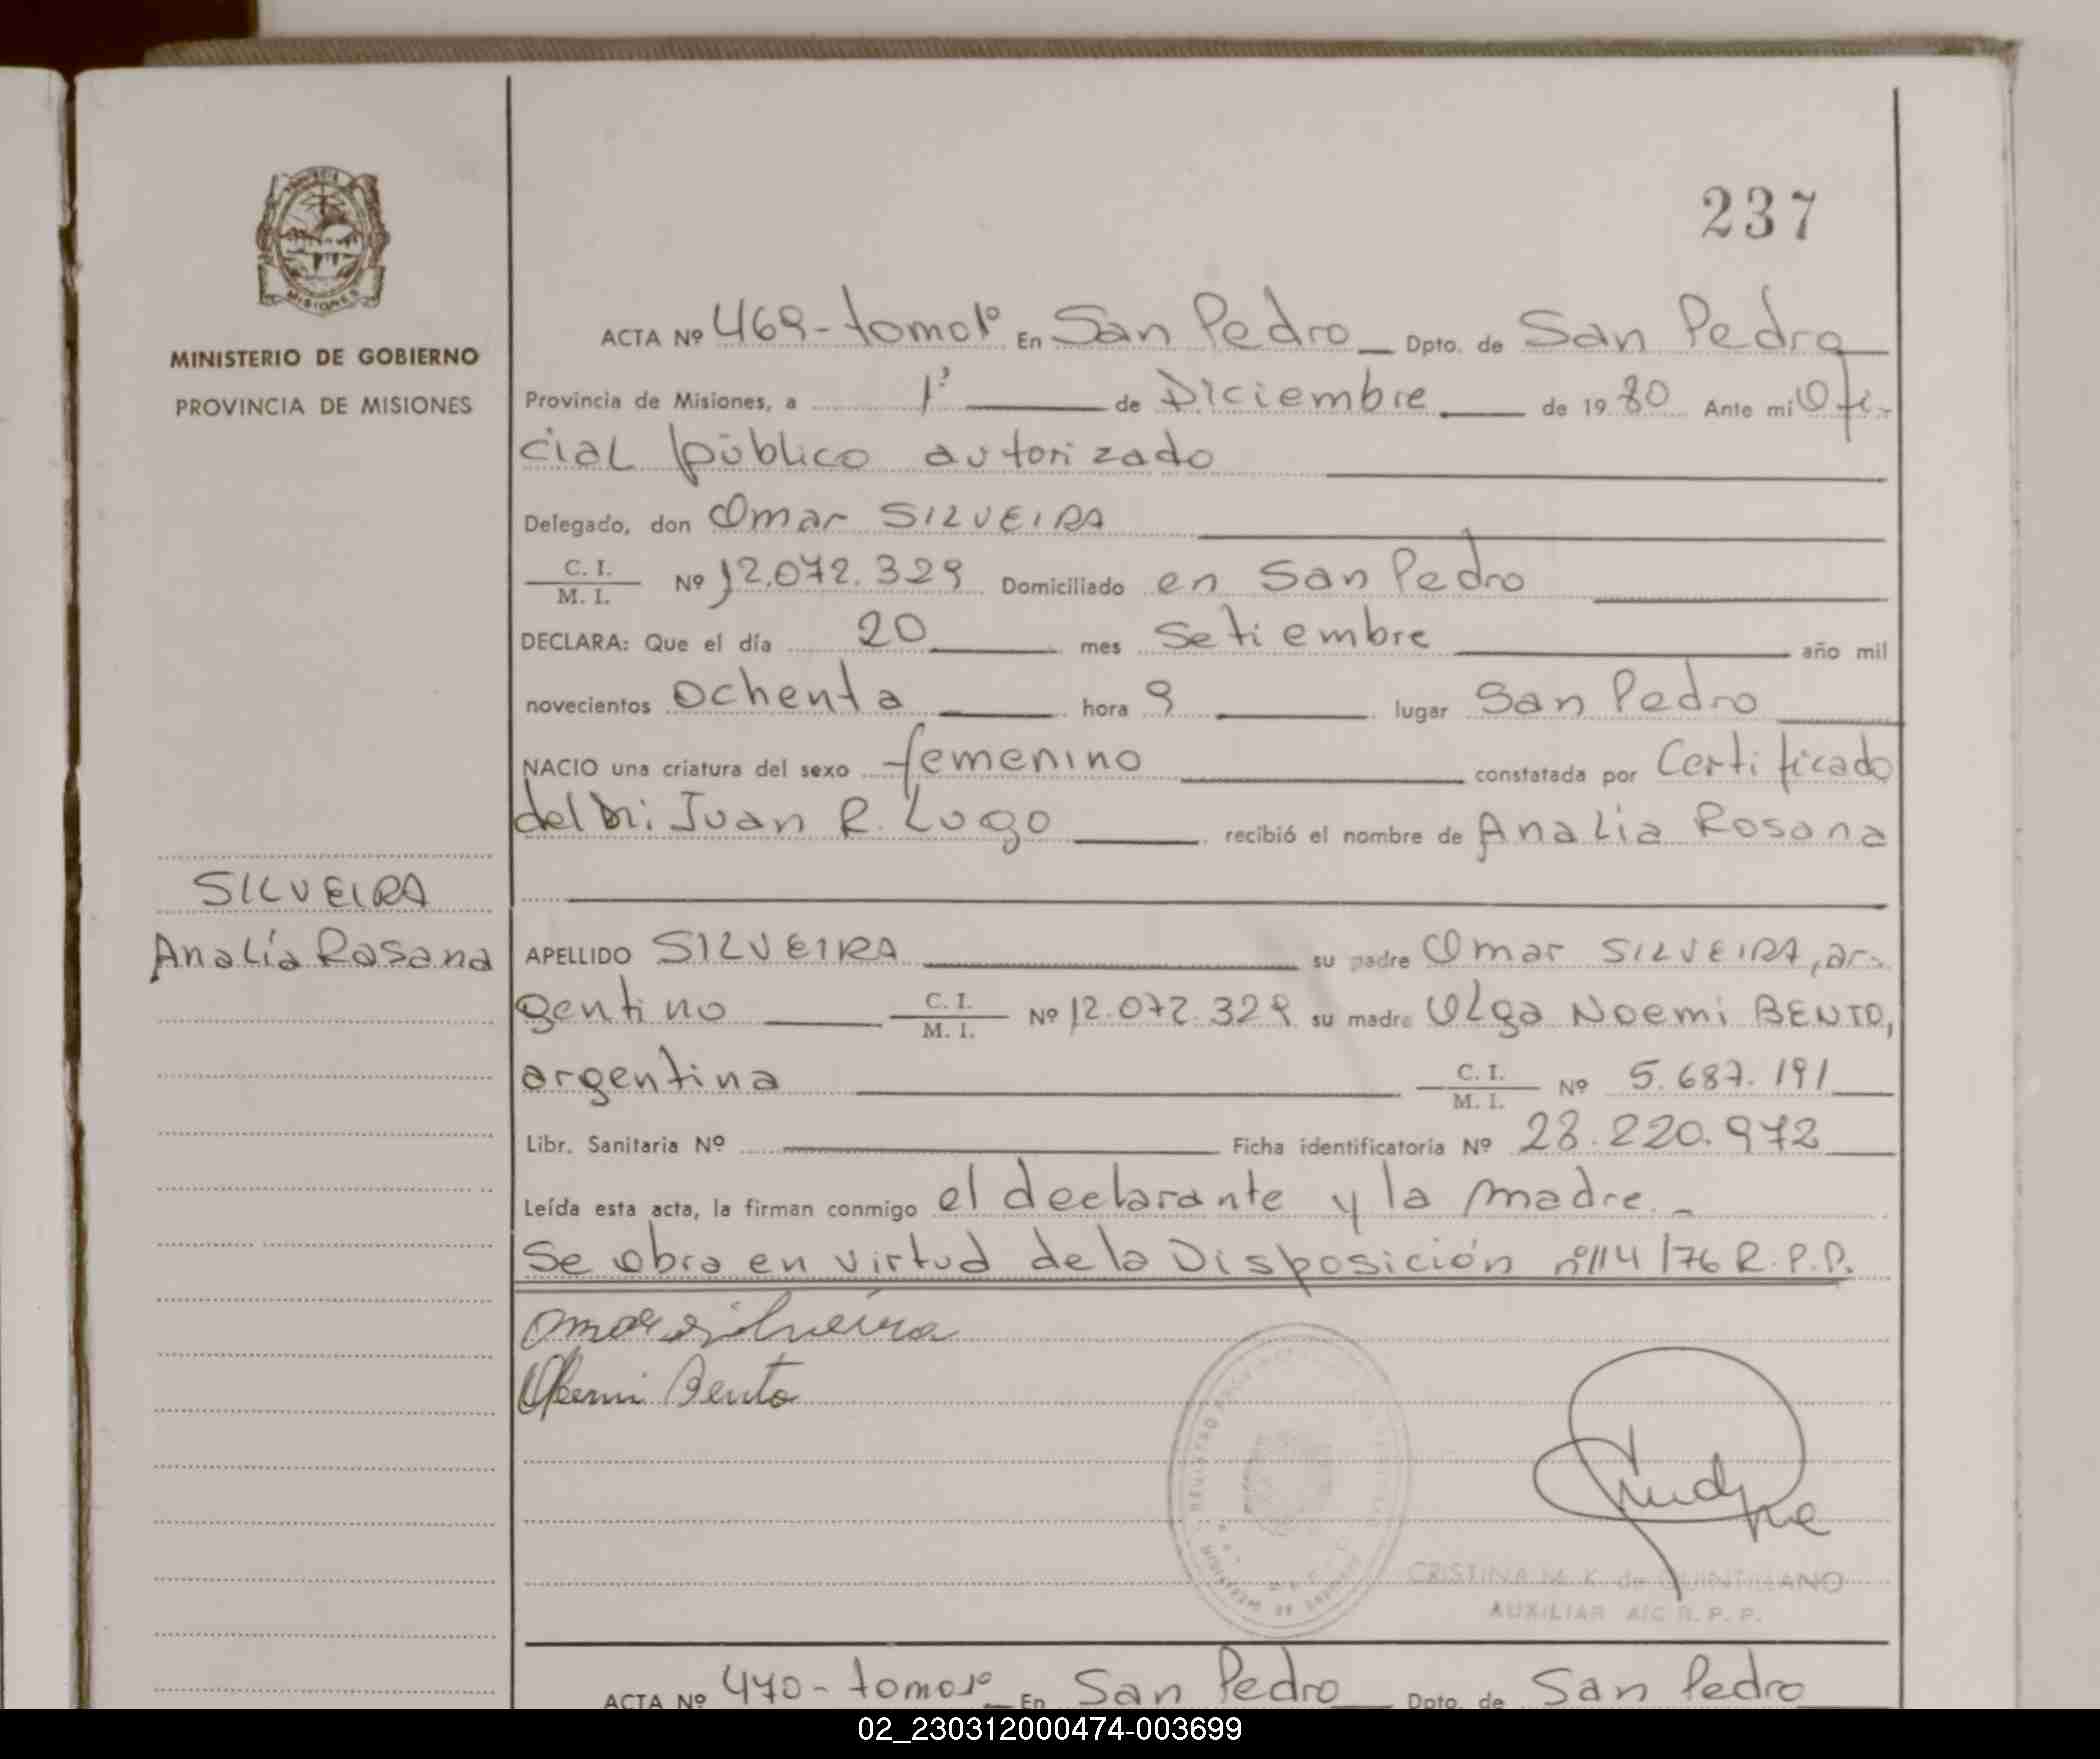 237
MINISTERIO DE GOBIERNO
PROVINCIA DE MISIONES
MISIONES
ACTA Nº 469-tomo1º En San Pedro Dpto. de San Pedro
Provincia de Misiones, a 1º de Diciembre de 1980 Ante mi Ofi-
cial público autorizado
Delegado, don Omar SILVEIRA
C. I.
M. I. Nº 12.072.329 Domiciliado en San Pedro
DECLARA: Que el día 20 mes Setiembre año mil
novecientos ochenta hora 9 lugar San Pedro
NACIO una criatura del sexo femenino constatada por Certificado
del Juan R. Lugo recibió el nombre de Analia Rosana
SILVEIRA
Analía Rosana
APELLIDO SILVEIRA su padre Omar SILVEIRA, ar-
gentino C. I.
M. I. Nº 12.072.329 su madre Olga Noemi BENTO,
argentina C. I.
M. I. Nº 5.687.191
Libr. Sanitaria Nº Ficha identificatoria Nº 28.220.972
Leída esta acta, la firman conmigo el declarante y la madre.-
Se obra en virtud de la Disposición nº114/76 R.P.P.
Omar Silveira
Bento
CRISTINA M. K. de QUINTILLANO
AUXILIAR A/C R. P. P.
ACTA Nº 470-tomo1º En San Pedro Dpto. de San Pedro
02_230312000474-003699